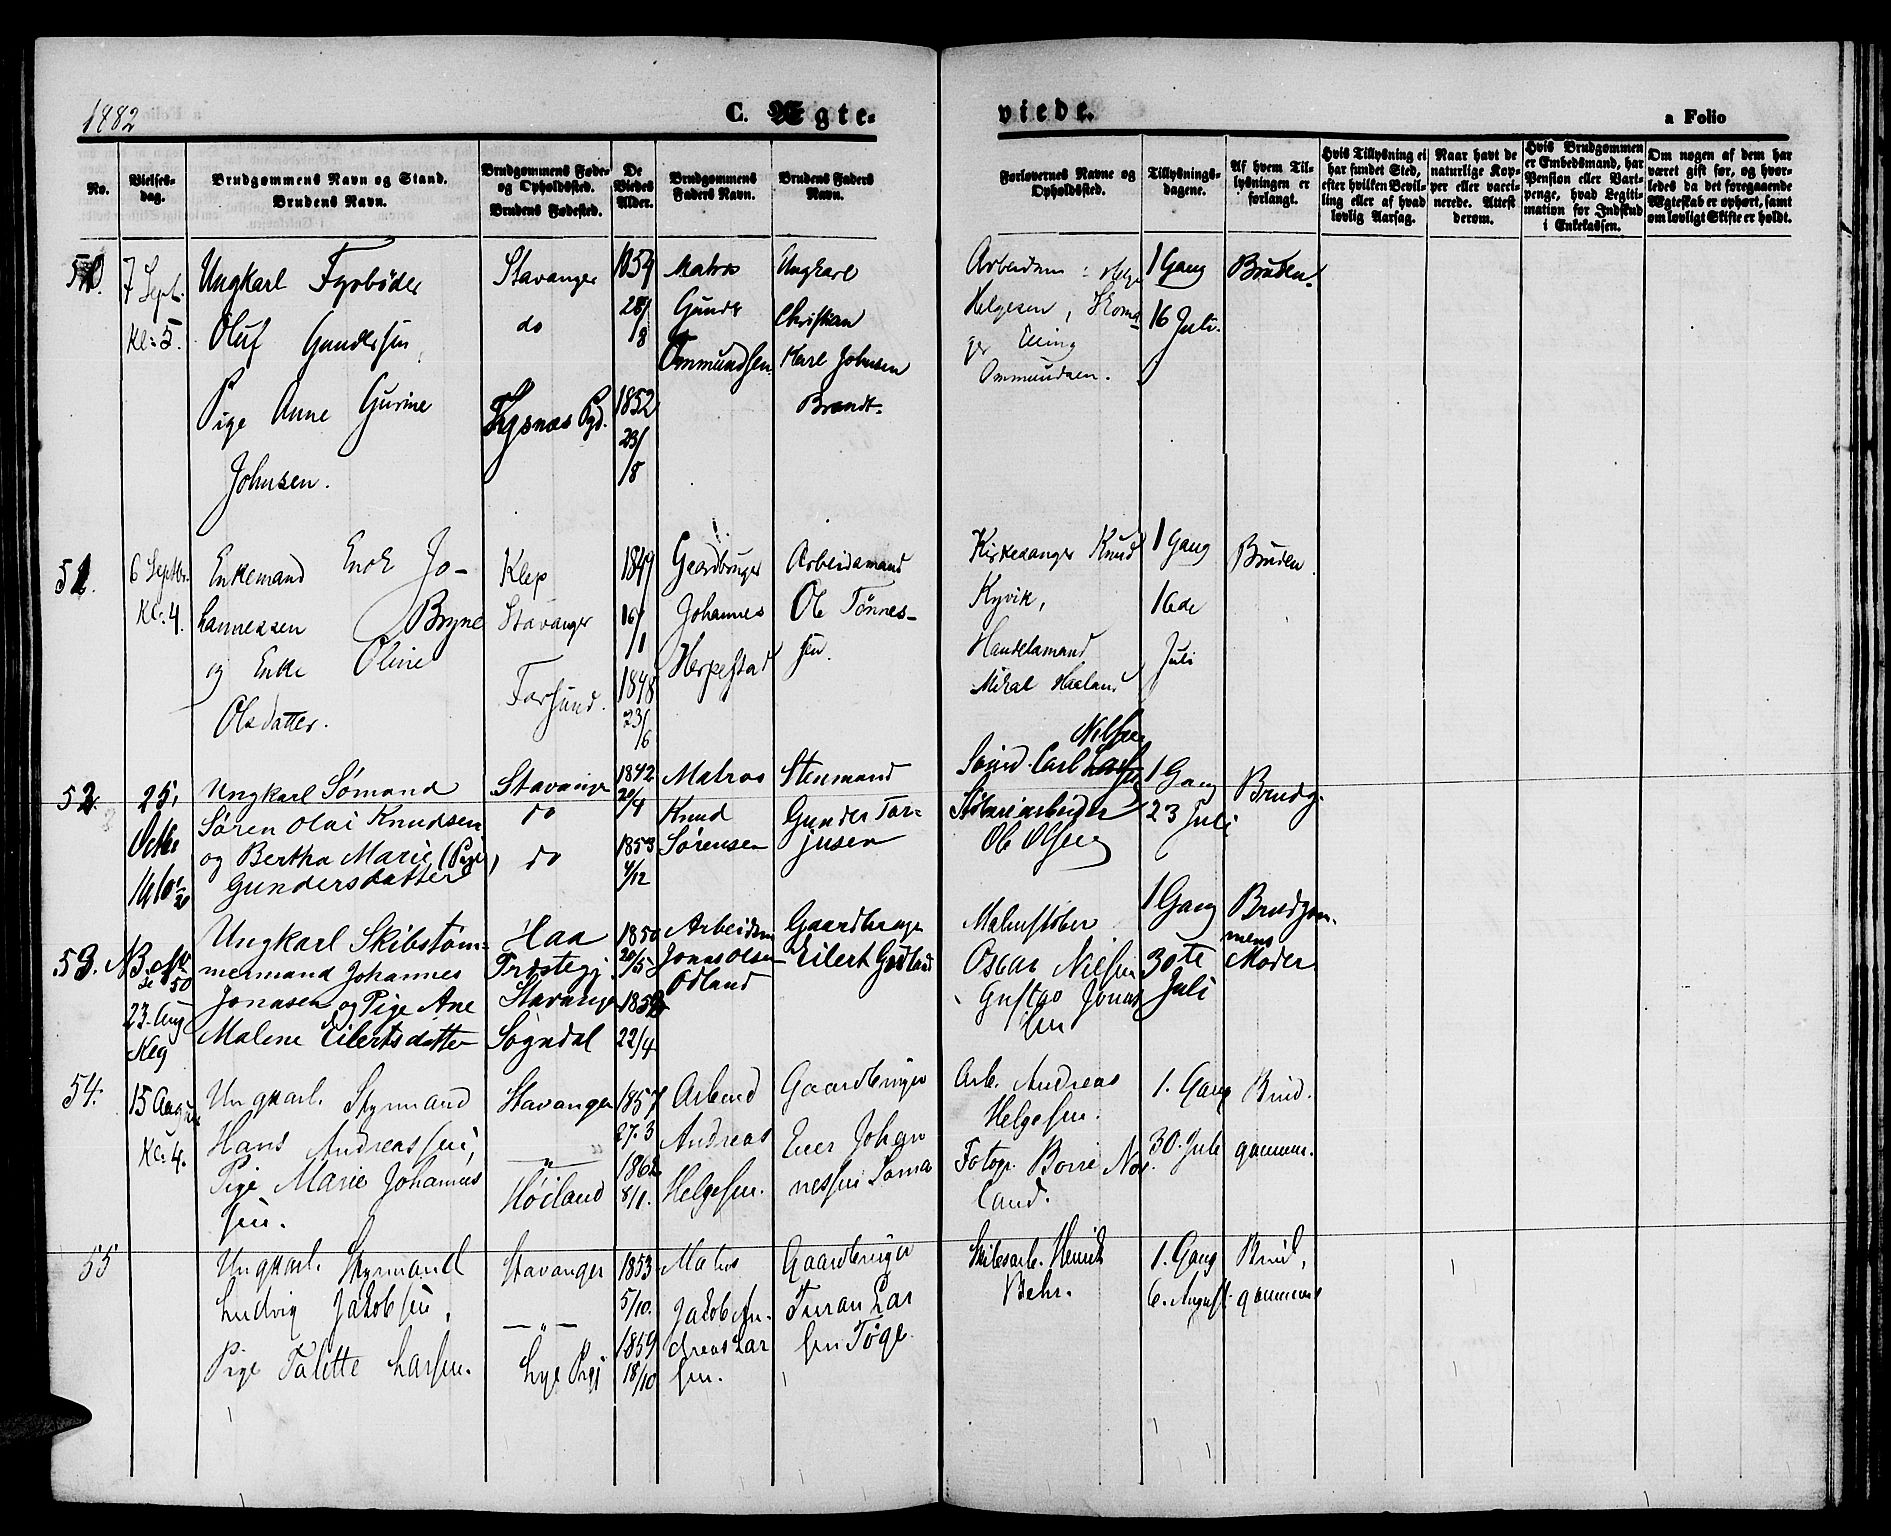 1882
C. Ægte-
viede.
a Folio
No.
Vielses-
dag.
Brudgommens Navn og Stand.
Brudens Navn.
Brudgommens Føde-
og Opholdssted.
Brudens Fødested.
De
Viedes
Alder.
Brudgommens
Faders Navn.
Brudens Faders
Navn.
Forlovernes Navne og
Opholdssted.
Tillysnings-
dagene.
Af hvem Til-
lysningen er
forlangt.
Hvis Tillysning ei
har fundet Sted,
efter hvilken Bevil-
ling eller af hvad
lovlig Aarsag.
Naar havt de
naturlige Kop-
per eller vacci-
nerede. Attest
derom.
Hvis Brudgommen
er Embedsmand, har
Pension eller Vart-
penge, hvad Legiti-
mation for Indskud
i Enkekassen.
Om nogen af dem har
været gift før, og hvor-
ledes da det foregaaende
Ægteskab er ophørt, samt
om lovligt Skifte er holdt.
50.
7 Sept.
Kl: 5.
Ungkarl Fyrbøder
Oluf Gundersen,
Pige Anne Gurine
Johnsen.
Stavanger
do
Tysnæs Pgd.
1854
28/8
1852
23/8
Matros
Gunder
Ommundsen
Ungkarl
Christian
Karl Johnsen
Brandt.
Arbeidsm: Helge
Helgesen, Skoma
ger Elling
Ommundsen.
1 Gang
16 Juli.
Bruden.
51.
6 Septbr.
Kl: 4.
Enkemand Enok Jo-
hannessen Bryne
og Enke Oline
Olsdatter.
Klep
Stavanger
Farsund.
1849
16/1
1848
23/6
Gaardbruger
Johannes
Herpestad
Arbeidsmand
Ole Tønnes-
sen.
Kirkesanger Knud
Kyvik,
Handelsmand
Mikal Haaland
1 Gang
16de
Juli
Bruden
52.
25.
Octbr.
Ungkarl Sømand
Søren Olai Knudsen
og Bertha Marie (Pige)
Gundersdatter
Stavanger
do
do
1842
20/4
1853
4/12
Matros
Knud
Sørensen
Stenmand
Gunder Tor-
jusen
Nilsen
Sømd. Carl Larsen
Ole Olsen
1 Gang
23 Juli
Brudg.
53.
NB.
23. Aug
Ungkarl Skibstøm-
mermand Johannes
Jonasen og Pige Ane
Malene Eilertsdatter
Haa
Præstegj.
Stavanger
Sogndal
1850
20/5
1852
22/4
Arbeidsm
Jonas Olsen
Odland
Gaardbruger
Eilert Gødland
Malmstøber
Oscar Nielsen
Gustav Jonas
sen
1 Gang
30te
Juli
Brudgom-
mens
Moder
54.
15 August
Kl: 4.
Ungkarl. Styrmand
Hans Andreassen,
Pige Marie Johannes
sen.
Stavanger
— " —
Høiland
1857
27.3
1862
8/11.
Arbmd
Andreas
Helgesen.
Gaardbruger
Iver Johan
nessen Soma
Arb. Andreas
Helgesen.
Fotogr. Borre Nor
land.
1. Gang
30. Juli
Brud.
gommen.
55
Ungkarl. Styrmand
Ludvig Jakobsen,
Pige Talette Larsen.
Stavanger
— " —
Lye Pgj
1853
5/10.
1859
18/10
Matros
Jakob An-
dreas Lar
sen.
Gaardbruger
Turan Lar
sen Tøge.
Skibsarb. Henrik
Behr.
1. Gang
6. August
Brud,
gommen